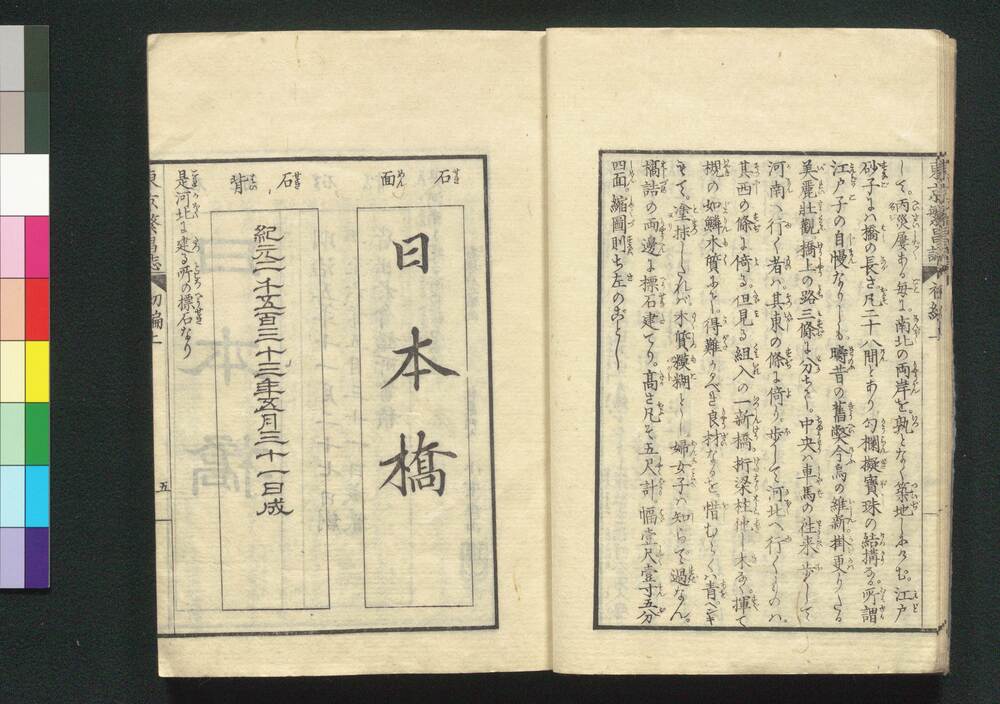 して。丙災屡ある毎に南北の両岸を。孰となく築地しにけむ。江戸
砂子にハ橋の長さ凡二十八間とあり。勾欄擬寶珠の結構なる。所謂
江戸子の自慢なりしも。疇昔の舊弊今為の維新掛更りたる
美麗壮觀橋上の路三條に分ち。中央ハ車馬の往来。歩して
河南へ行く者ハ。其東の條に倚り。歩して河北へ行くものハ。
其西の條に倚る。但見る組入の一新橋。桁梁柱他し木なく。揮て
槻の如鱗木質にて。得難かるべき良材なるを。惜むらくハ青ペンキ
もて。塗抹したれバ。木質糢糊として。婦女子ハ知らで過なん。
橋詰の両邊に標石建てり。高さ凡そ五尺計。幅壹尺壹寸五分
四面。縮圖則ち左のごとし
石面
日本橋
石背
紀元二千五百三十三年五月三十一日成
是河北に建る所の標石なり
東京繁昌誌 初編上
五